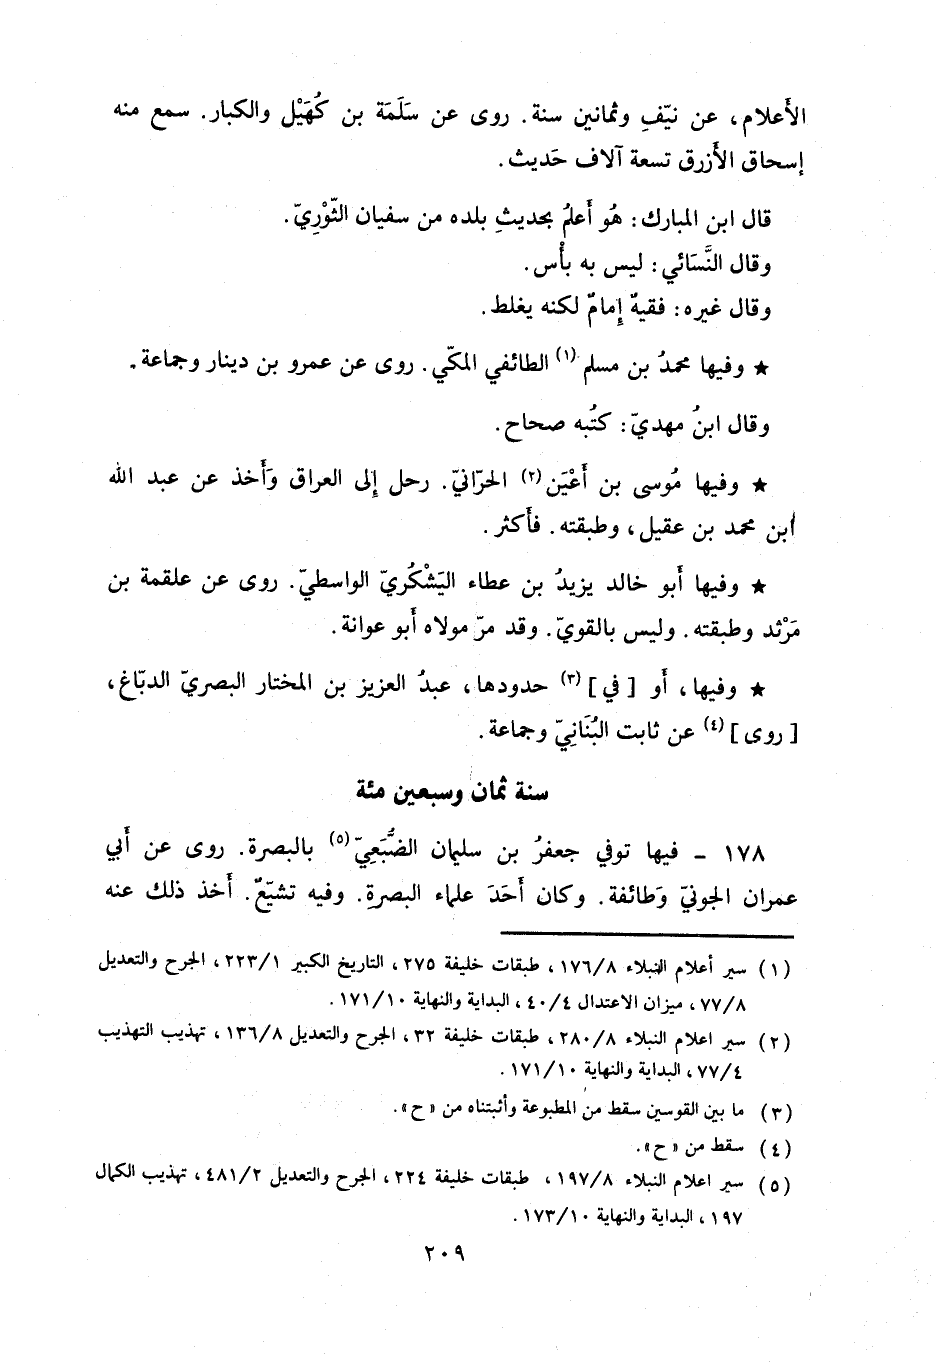 الأَعلام، عن نيّفٍ وثمانين سنة. روى عن سَلَمَة بن كُهَيْل والكبار. سمع منه
إسحاق الأَزرق تسعة آلاف حَديث.
قال ابن المبارك: هُو أَعلمُ بحديثِ بلده من سفيان الثّوْرِيّ.
وقال النَّسَائي: ليس به بأْس.
وقال غيره: فقيهٌ إِمامٌ لكنه يغلط.
★ وفيها محمدُ بن مسلم (١) الطائفي المكّي. روى عن عمرو بن دينار وجماعة.
وقال ابنُ مهديّ: كتُبه صحاح.
★ وفيها مُوسى بن أَعْيَن (٢) الحَرّانيّ. رحل إِلى العراق وَأَخذ عن عبد الله
ابن محمد بن عقيل، وطبقته. فأَكثر.
★ وفيها أَبو خالد يزيدُ بن عطاء اليَشْكُريّ الواسطيّ. روى عن علقمة بن
مَرْثد وطبقته. وليس بالقويّ. وقد مرّ مولاه أَبو عوانة.
★ وفيها، أَو [في] (٣) حدودها، عبدُ العزيز بن المختار البصريّ الدبّاغ،
[روى] (٤) عن ثابت البُنَانِيّ وجماعة.
سنة ثمان وسبعين مئة
١٧٨ - فيها توفي جعفرُ بن سليمان الضُّبَعِيّ (٥) بالبصرة. روى عن أَبي
عمران الجونيّ وَطائفة. وكان أَحَدَ علماء البصرةِ. وفيه تشيّعٌ. أَخذ ذلك عنه
(١) سير أعلام النبلاء ١٧٦/٨، طبقات خليفة ٢٧٥، التاريخ الكبير ٢٢٣/١، الجرح والتعديل
٧٧/٨، ميزان الاعتدال ٤٠/٤، البداية والنهاية ١٧١/١٠.
(٢) سير اعلام النبلاء ٢٨٠/٨، طبقات خليفة ٣٢، الجرح والتعديل ١٣٦/٨، تهذيب التهذيب
٧٧/٤، البداية والنهاية ١٧١/١٠.
(٣) ما بين القوسين سقط من المطبوعة وأثبتناه من «ح».
(٤) سقط من «ح».
(٥) سير اعلام النبلاء ١٩٧/٨، طبقات خليفة ٢٢٤، الجرح والتعديل ٤٨١/٢، تهذيب الكمال
١٩٧، البداية والنهاية ١٧٣/١٠.
٢٠٩